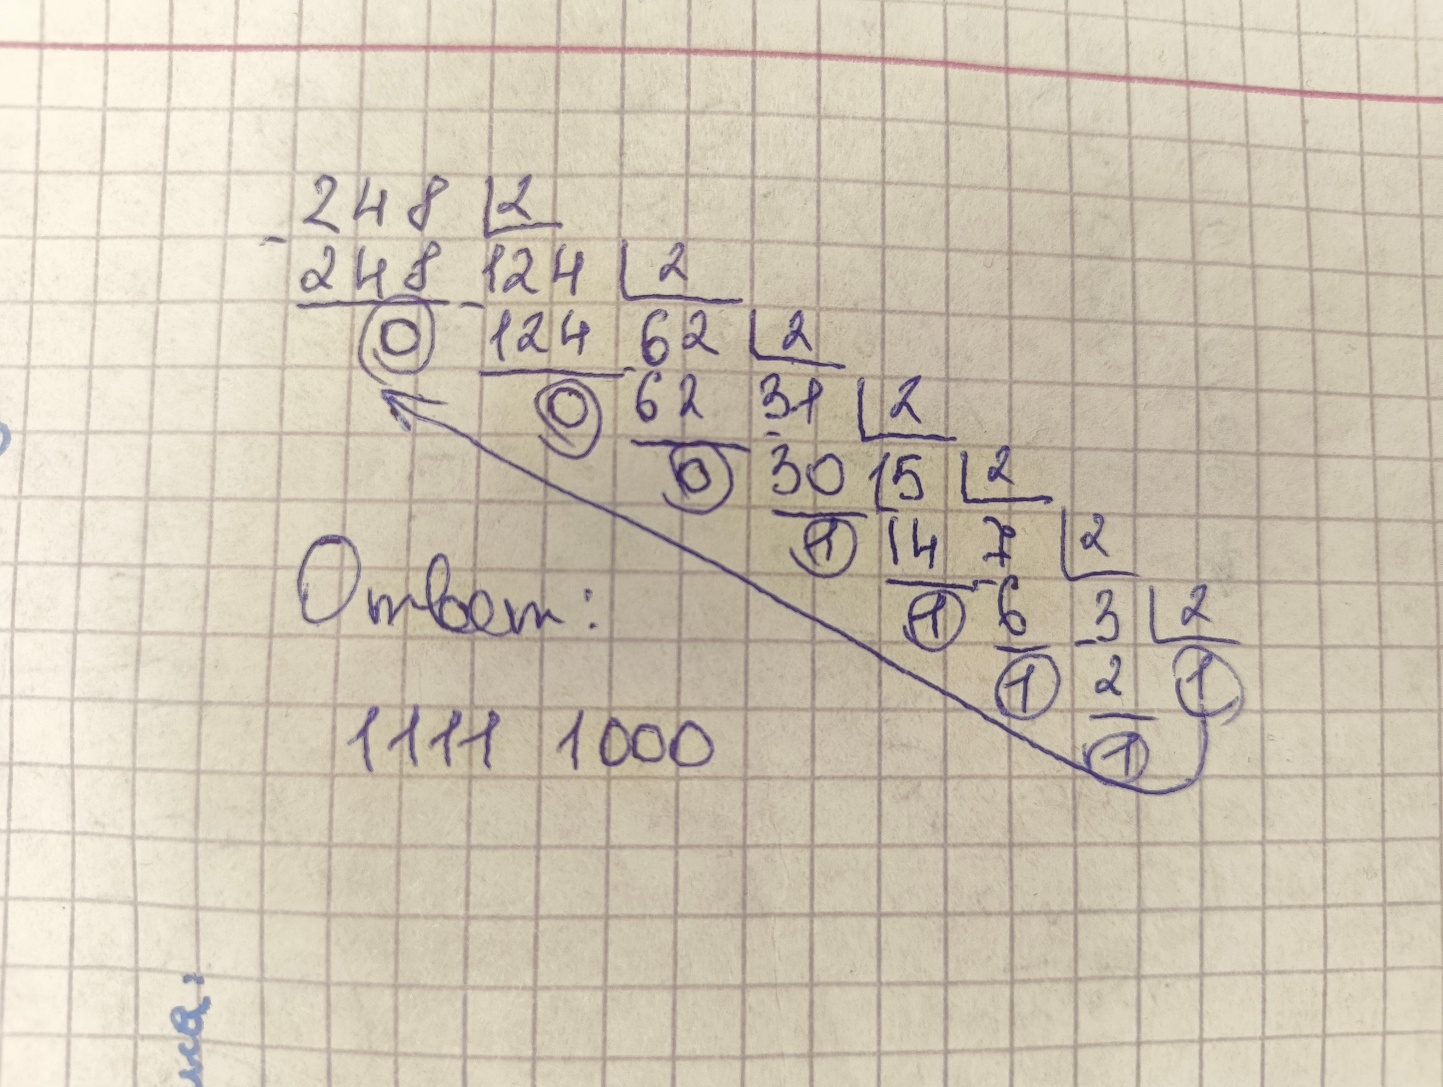 248 2
- 248 124 2
0 - 124 62 2
0 - 62 31 2
0 - 30 15 2
1 - 14 7 2
1 - 6 3 2
1 - 2 1
1
Ответ:
1111 1000